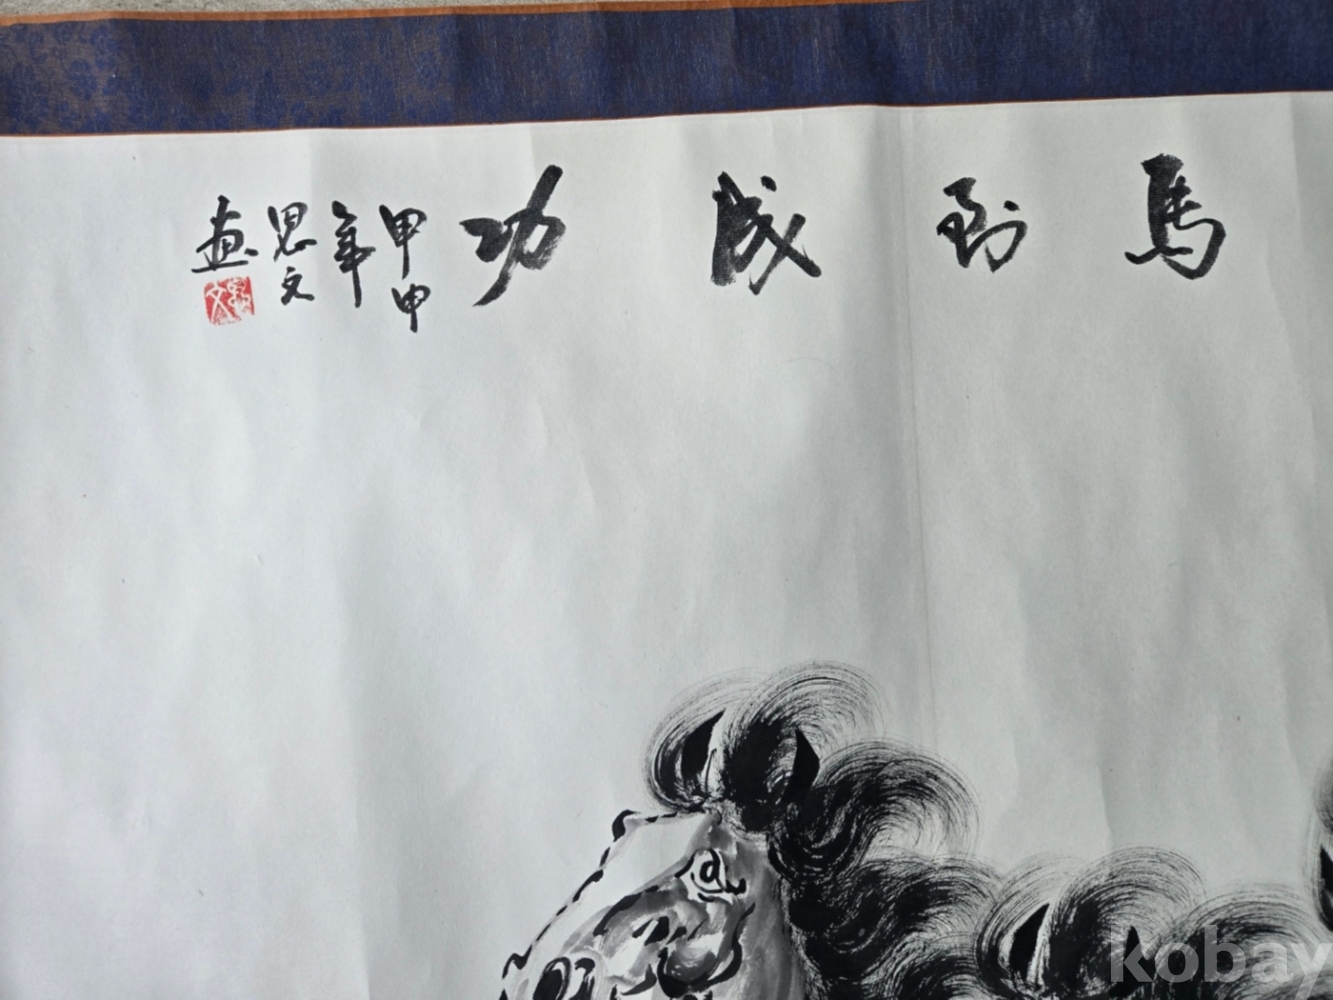 馬到成功
甲申
年
思文
畫
思文
kobay